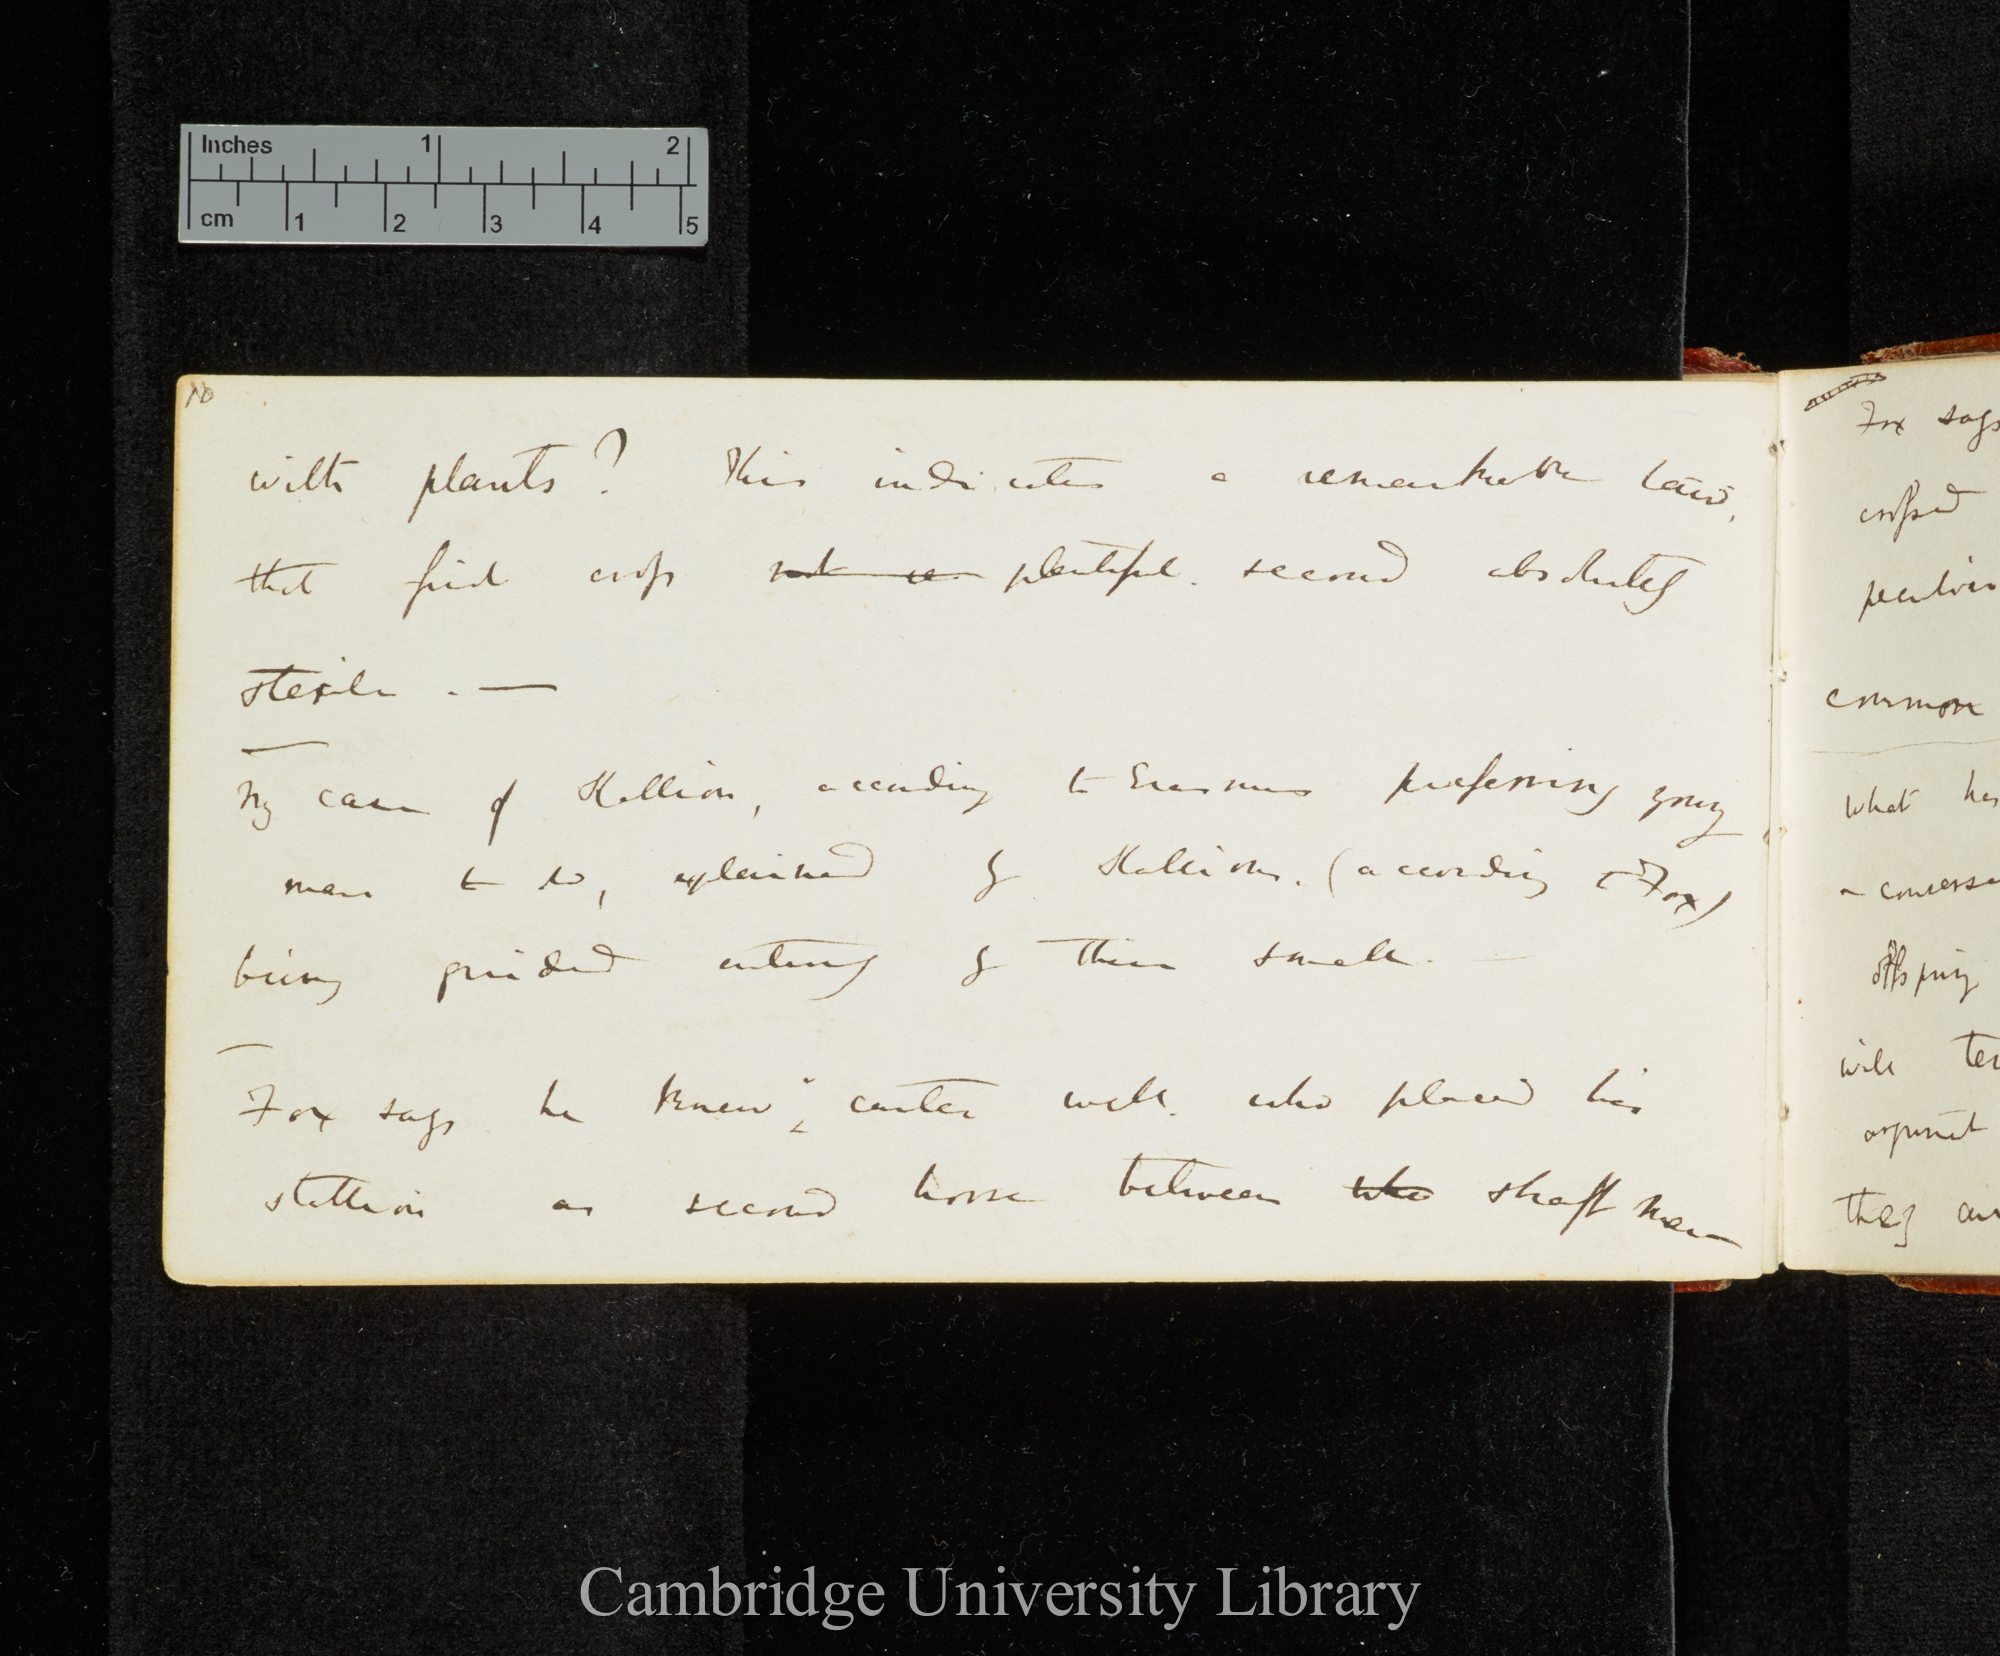 Inches 1 2
cm 1 2 3 4 5
with plants? This indicates a remarkable law,
that first cross not so plentiful. second absolutely
sterile. —
My case of Stallion, according to Erasmus preferring young
mare to old, explained by Stallions. (according to Fox)
being guided entirely by their smell. —
Fox says he knew a carter well. who placed his
stallion as second horse between who shaft mare
Fox says
crossed
peculiar
common
What has
a conversa
offspring
will
opposit
they are
Cambridge University Library